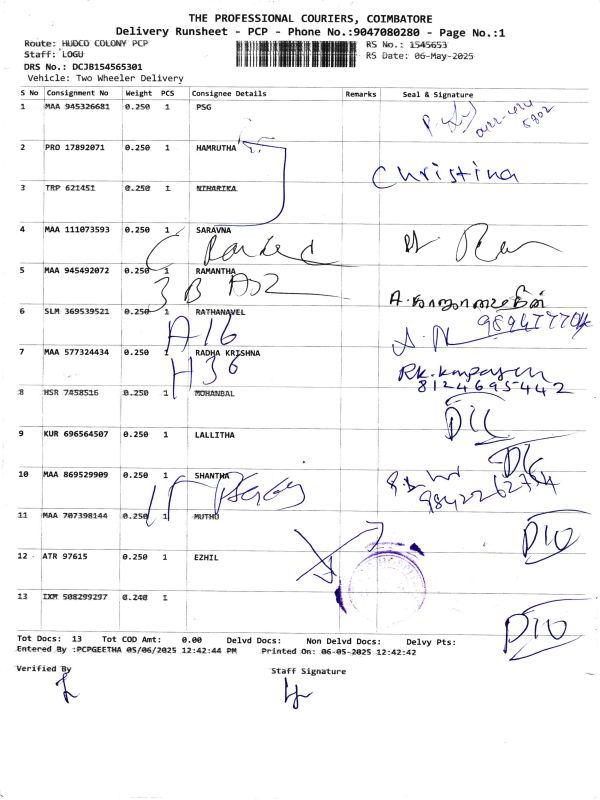 THE PROFESSIONAL COURIERS, COIMBATORE
Delivery Runsheet - PCP - Phone No.:9047080280 - Page No.:1
Route: HUDCO COLONY PCP RS No.: 1545653
Staff: LOGU RS Date: 06-May-2025
DRS No.: DCJB154565301
Vehicle: Two Wheeler Delivery
S No Consignment No Weight PCS Consignee Details Remarks Seal & Signature
1 MAA 945326681 0.250 1 PSG
0422-424
5802
2 PRO 17892071 0.250 1 HAMRUTHA
Christina
3 TRP 621451 0.250 1 NIHARIKA
4 MAA 111073593 0.250 1 SARAVNA
5 MAA 945492072 0.250 1 RAMANTHA
3 B A52
6 SLM 369539521 0.250 1 RATHANAVEL
A16
7 MAA 577324434 0.250 1 RADHA KRISHNA
H36
8124695442
8 HSR 7458516 0.250 1 MOHANBAL
9 KUR 696564507 0.250 1 LALLITHA
10 MAA 869529909 0.250 1 SHANTHA
11 MAA 707398144 0.250 1 MUTHU
12 ATR 97615 0.250 1 EZHIL
13 IXM 508299297 0.240 1
Tot Docs: 13 Tot COD Amt: 0.00 Delvd Docs: Non Delvd Docs: Delvy Pts:
Entered By :PCPGEETHA 05/06/2025 12:42:44 PM Printed On: 06-05-2025 12:42:42
Verified By Staff Signature